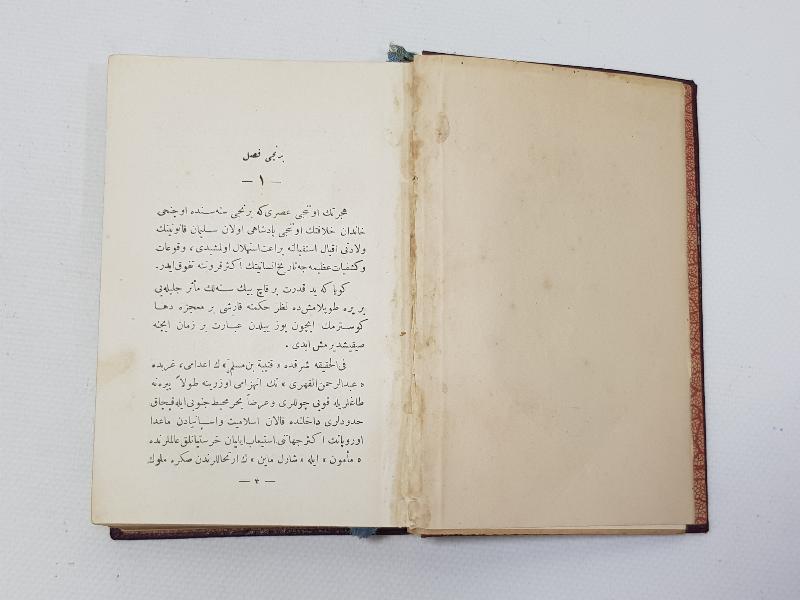 برنجی فصل
— ۱ —
هجرتك اوننجی عصری كه برنجی سنه سنده اوچنجی
خاندان خلافتك اوننجی پادشاهی اولان سلیمان قانونینك
ولادتی اقبال استقبالنه براعت استهلال اولمشیدی، وقوعات
وكشفیات عظیمه جه تاریخ انسانیتك اكثر قروننه تفوق ایدر.
كویا كه ید قدرت بر قاچ بیك سنه لك مآثر جلیله یی
بر یره طوپلامش ده نظر حكمته قارشی بر معجزه دها
كوسترمك ایچون یوز ییلدن عبارت بر زمان ایچنه
صیقیشدیرمش ایدی.
فی الحقیقه شرقده « قتیبة بن مسلم » ك اعدامی، غربده
« عبدالرحمن الفهری » نك انهزامی اوزرینه طولاً پیره نه
طاغلریله قوبی چوللری وعرضاً بحر محیط جنوبی ایله قپچاق
حدودلری داخلنده قالان اسلامیت واسپانیادن ماعدا
اوروپانك اكثر جهاتنی استیعاب ایلیان خرستیانلق عالملرنده
« مأمون » ایله « شارل ماین » ك ارتحاللرندن صكره ملوك
— ۳ —